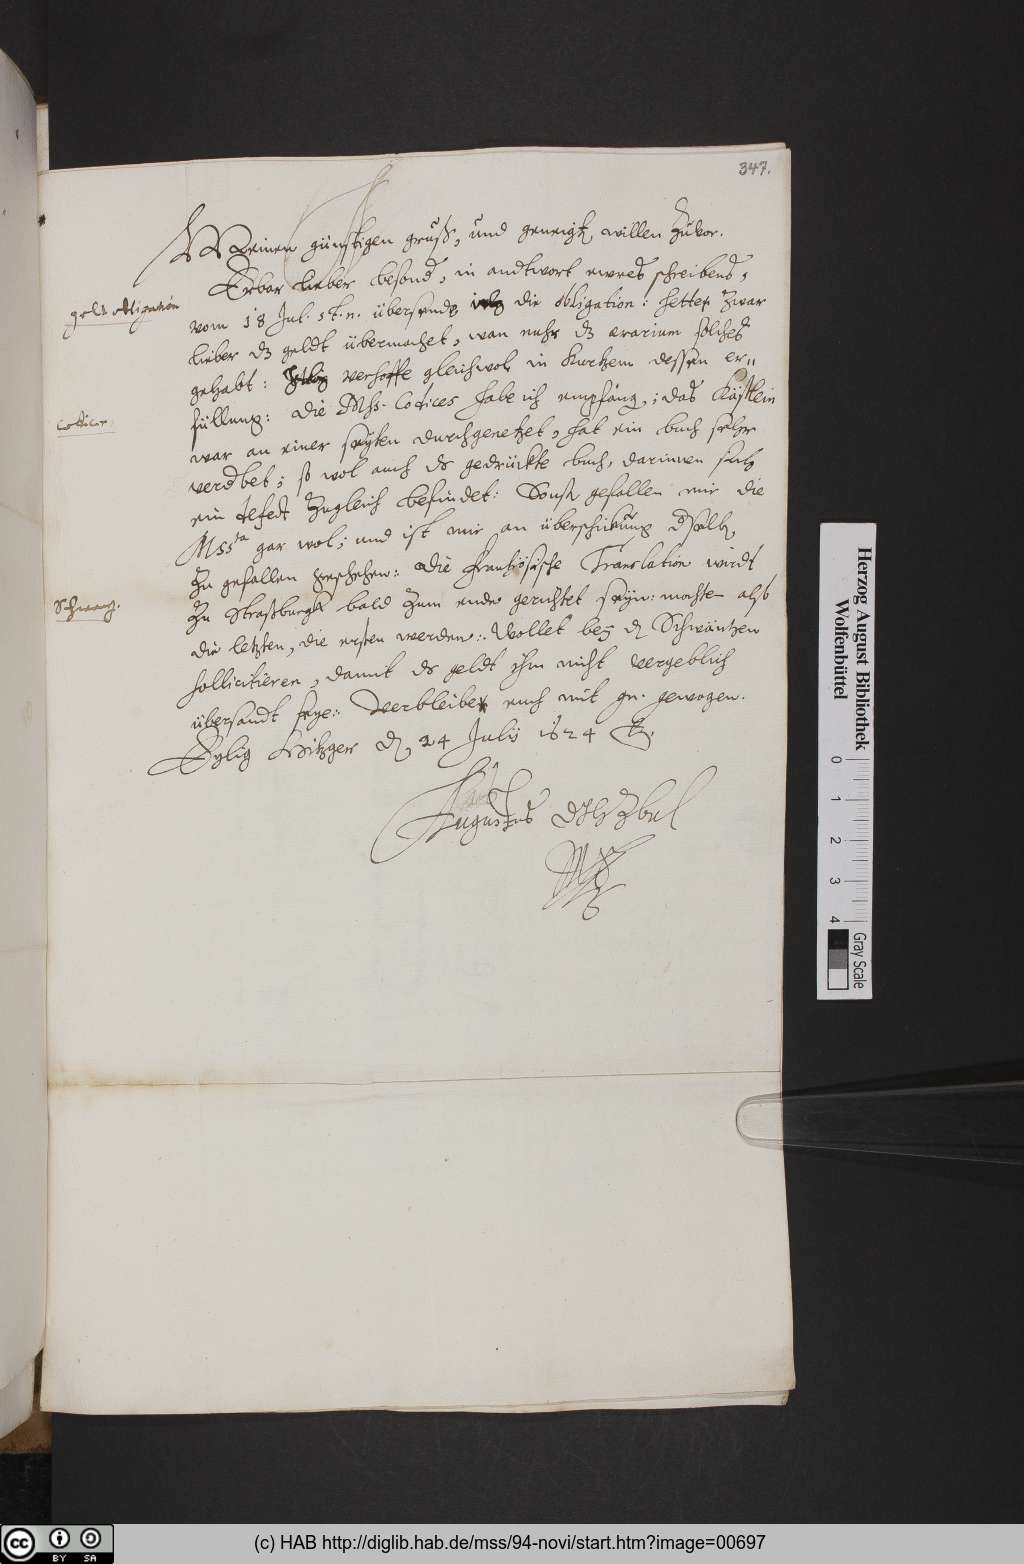 347.
Meinen günstigen gruß, und geneigt willen zuvor.
Erbar lieber besond, in andtwort ewres schreibens,
geldt obligation
vom 18 Jul. st. n. übersende die obligation: hette zwar
lieber dz geldt übermachet, wan nuhr dz ærarium solches
gehabt: verhoffe gleichwol in kurtzem dessen er-
codices
füllung: Die Mss. Codices habe ich empfang.; das kästlein
war an einer seyten durchgenetzet, hat ein buch sehr
verdbet; so wol auch ds gedrückte buch, darinnen sich
ein defect zugleich befindet: Sonst gefallen mir die
Mssta gar wol; und ist mir an überschickung
zu gefallen geschehen: Die Frantzösische Translation wirdt
Schwartz.
zu Straßburgk bald zum ende gerichtet seyn: mochten also
die letzten, die ersten werden: Wollet bey d Schwäntzen
sollicitieren, damit ds geldt ihm nicht vergeblich
übersandt seye: Verbleibe euch mit gn. gewogen.
Eylig Hitzger d 24 Julij 1624
Augustus
Herzog August Bibliothek
Wolfenbüttel
0 1 2 3 4
Gray Scale
(c) HAB http://diglib.hab.de/mss/94-novi/start.htm?image=00697
cc BY SA